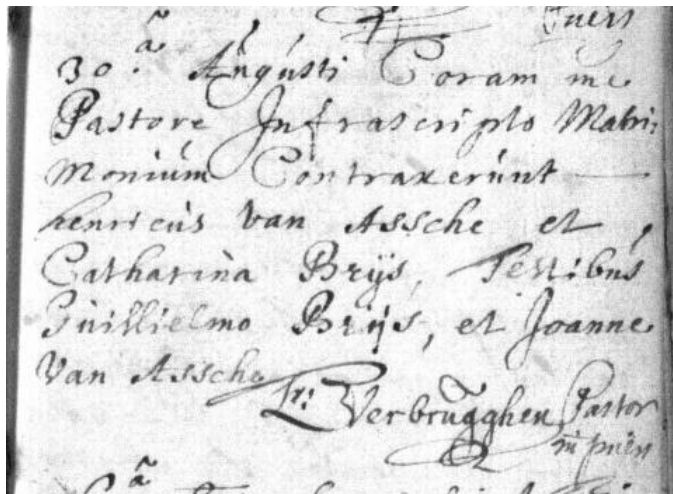 Puers
30.a Augusti Coram me
Pastore Infrascripto Matri:
monium Contraxerunt
henricus Van Assche et
Catharina Brijs, Testibus
Guillielmo Brijs, et Joanne
Van Assche
fr: Verbrugghen Pastor
in puers